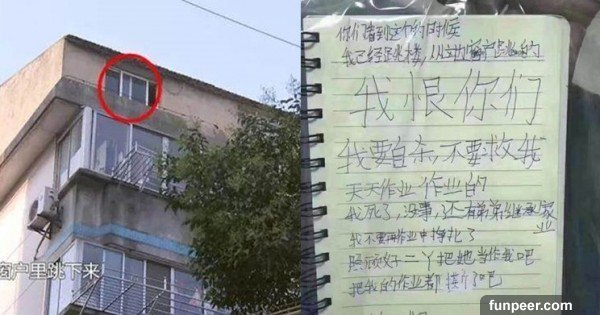 窗户里跳下来
你们看到这个的时候
我已经跳楼，从这边窗户跳的
我恨你们
我要自杀，不要救我
天天作业作业的
我死了，没事，还有弟弟继承家业
我不要再作业中挣扎了
照顾好二丫把她当作我吧
把我的作业都烧了吧
funpeer.com